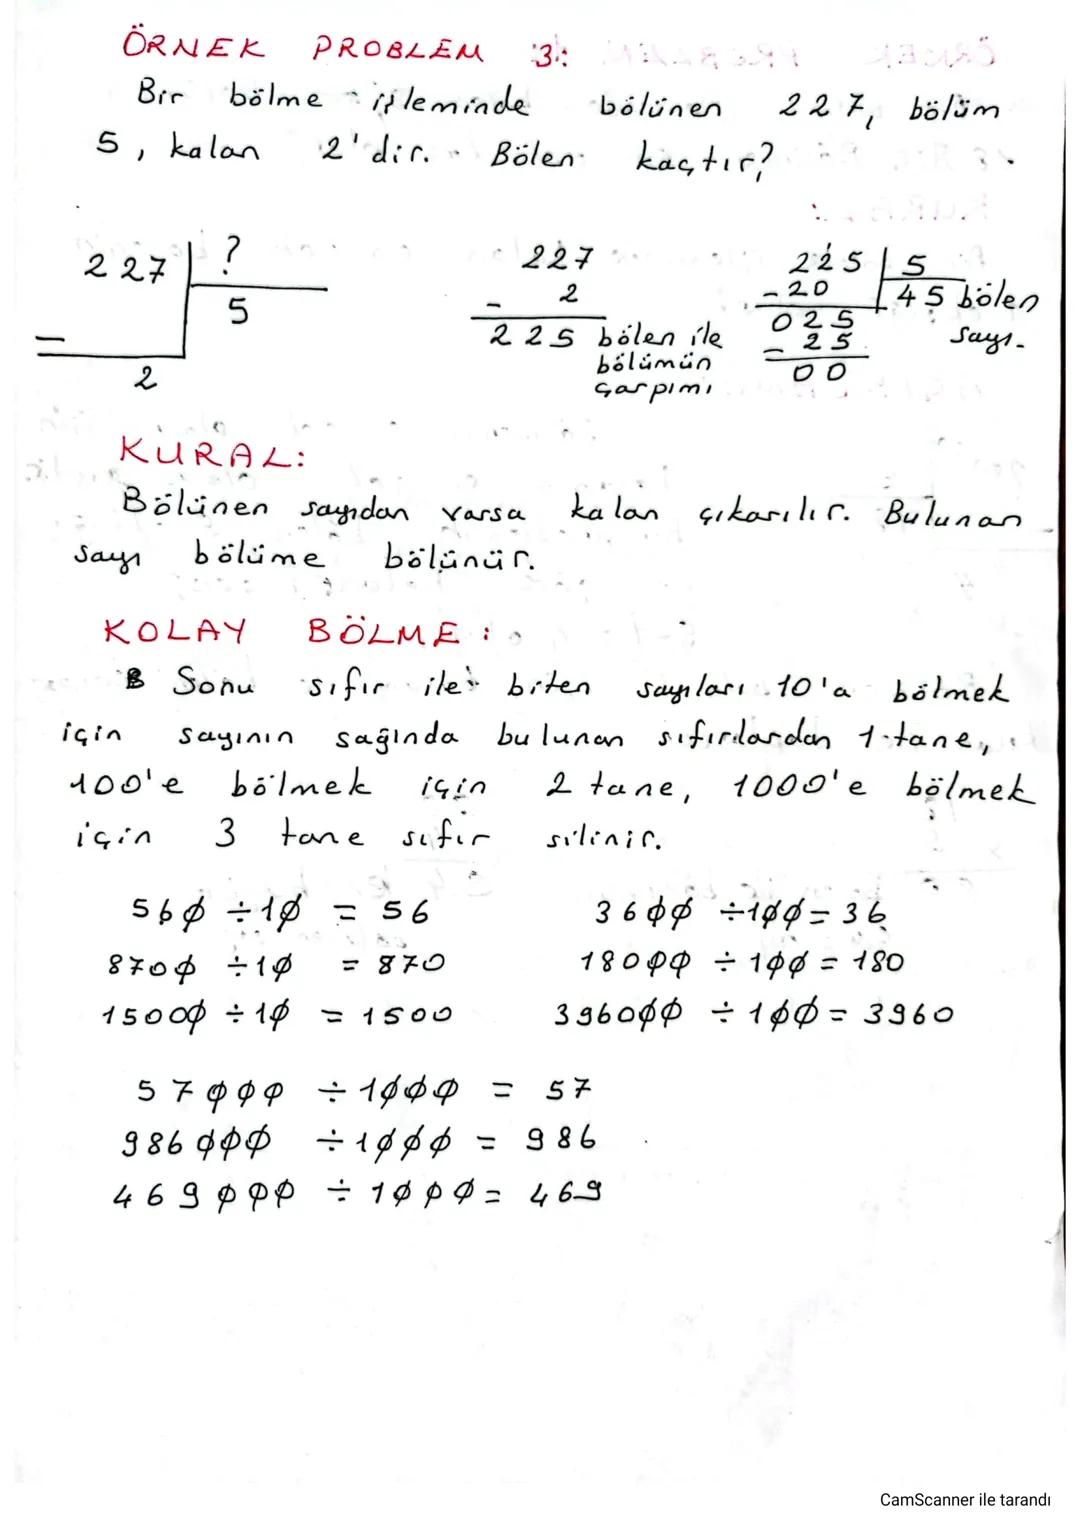 ÖRNEK PROBLEM 3:
Bir bölme işleminde bölünen 227, bölüm
5, kalan 2'dir. Bölen kaçtır?
227 ? 227 225 5
5 - 2 - 20 45 bölen
- 225 bölen ile 025 sayı.
2 bölümün - 25
çarpımı 00
KURAL:
Bölünen sayıdan varsa kalan çıkarılır. Bulunan
sayı bölüme bölünür.
KOLAY BÖLME:
Sonu sıfır ile biten sayıları 10'a bölmek
için sayının sağında bulunan sıfırlardan 1 tane,
100'e bölmek için 2 tane, 1000'e bölmek
için 3 tane sıfır silinir.
560 ÷ 10 = 56 3600 ÷ 100 = 36
8700 ÷ 10 = 870 18000 ÷ 100 = 180
15000 ÷ 10 = 1500 396000 ÷ 100 = 3960
57000 ÷ 1000 = 57
986000 ÷ 1000 = 986
469000 ÷ 1000 = 469
CamScanner ile tarandı